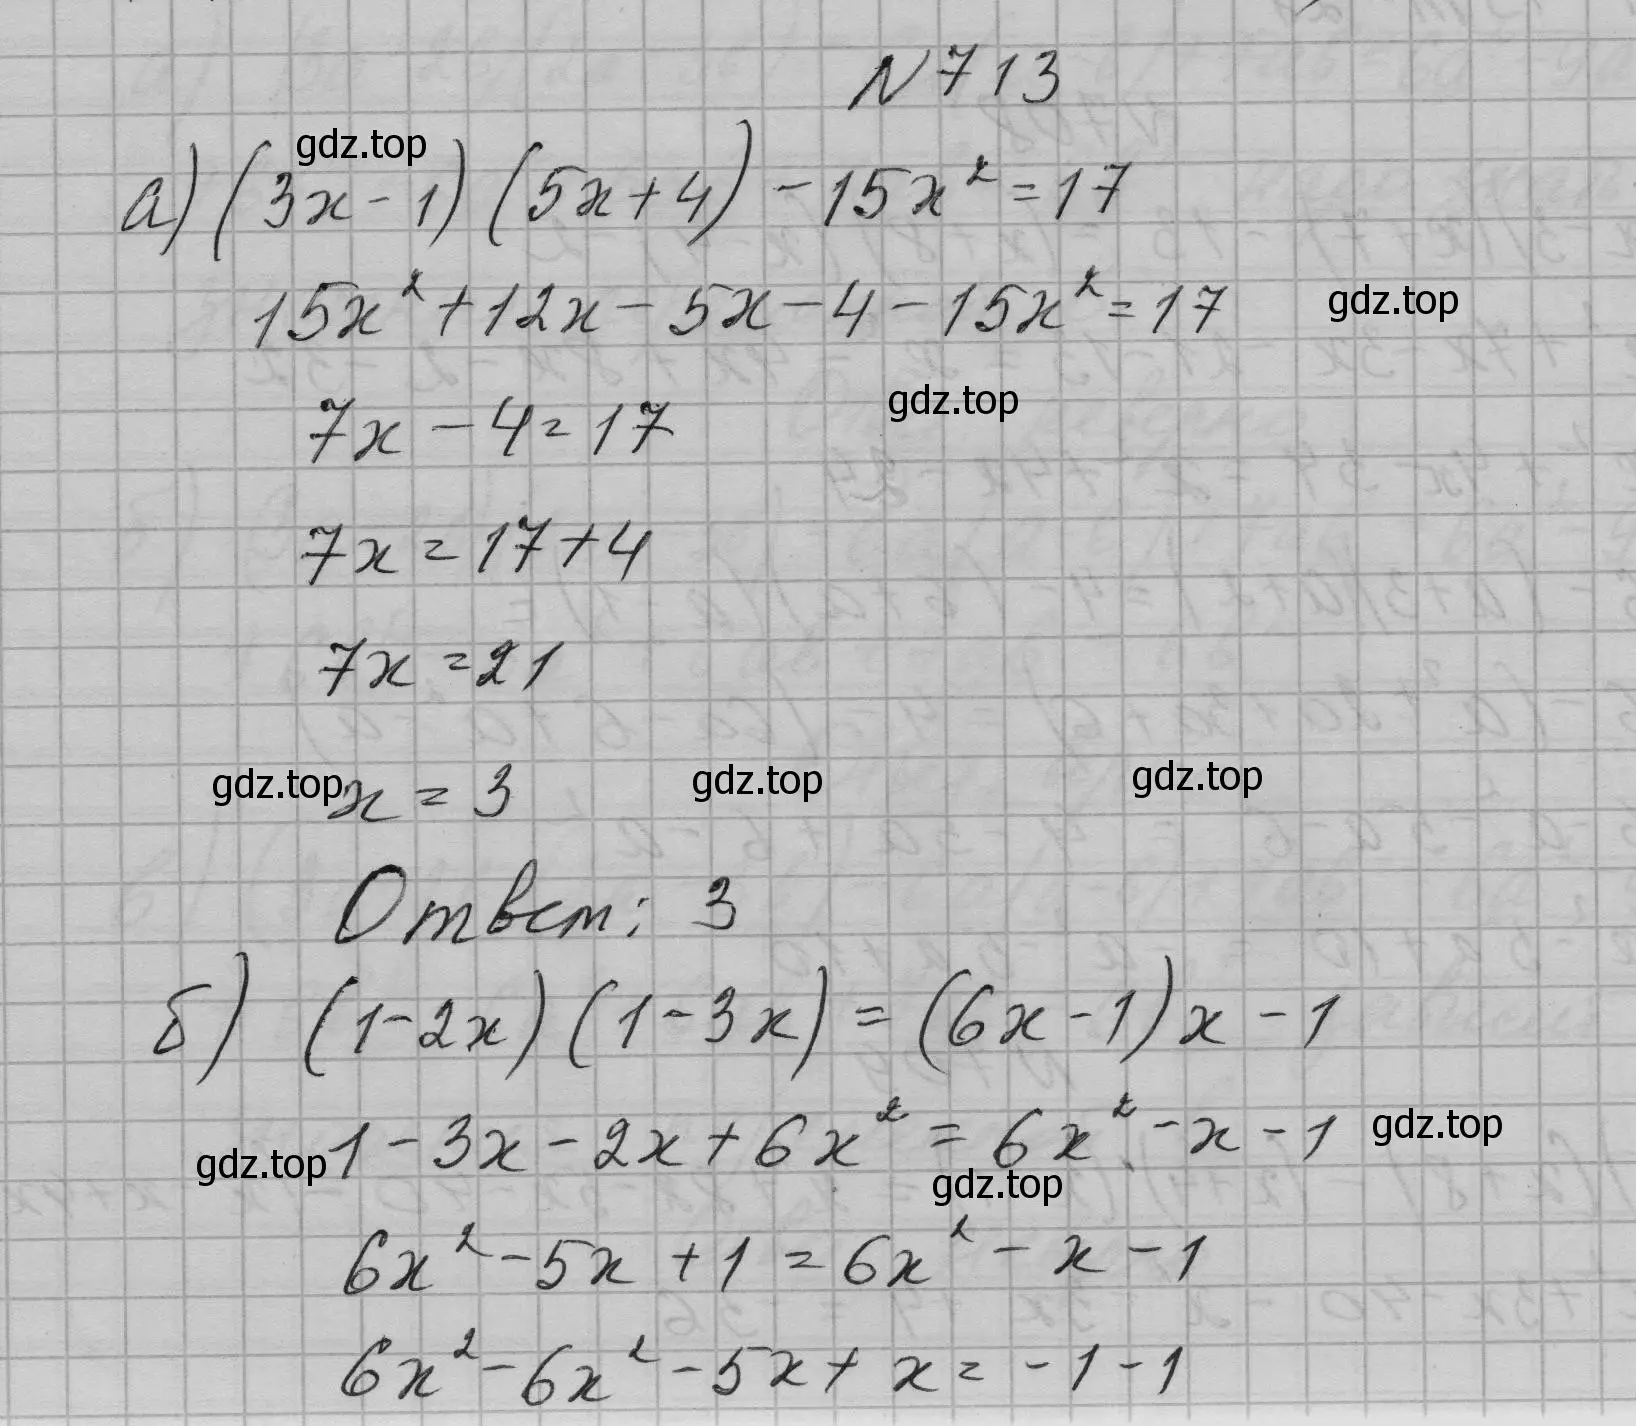 N713
gdz.top
а) (3x - 1) (5x + 4) - 15x² = 17
15x² + 12x - 5x - 4 - 15x² = 17
gdz.top
7x - 4 = 17
gdz.top
7x = 17 + 4
7x = 21
gdz.top
x = 3
gdz.top
gdz.top
Ответ: 3
б) (1 - 2x) (1 - 3x) = (6x - 1) x - 1
gdz.top
1 - 3x - 2x + 6x² = 6x² - x - 1
gdz.top
gdz.top
6x² - 5x + 1 = 6x² - x - 1
6x² - 6x² - 5x + x = -1 - 1